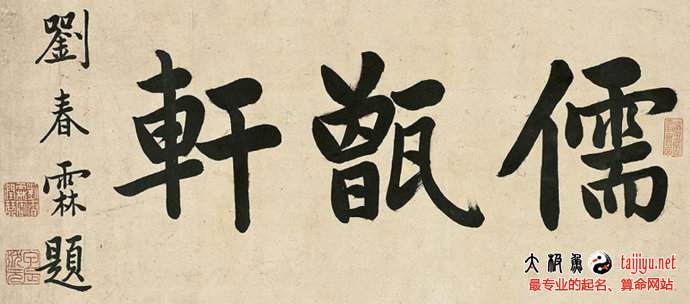 儒甑軒
劉春霖題
太极鱼 taijiyu.net
最专业的起名、算命网站